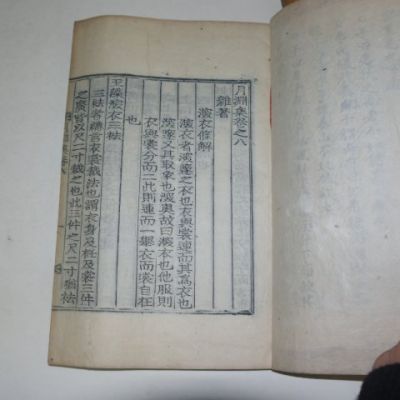 月淵集卷之八
雜著
深衣條解
深衣者深邃之衣也衣與裳連而其爲衣也
深邃又其取象也深奧故曰深衣也他服則
衣與裳分而二此則連而一雖衣而裳自在
也
玉藻深衣三袪
三袪者緫言衣裳裁法也謂衣身及袵及裳三件
之廣皆以尺二寸裁之也此三件之尺二寸猶袪